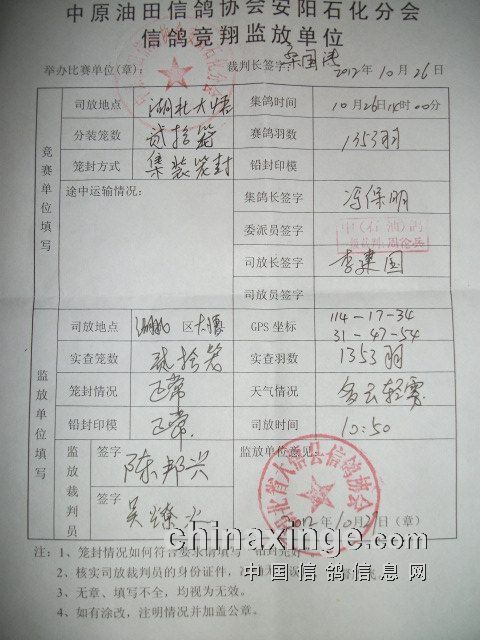 中原油田信鸽协会安阳石化分会
信鸽竞翔监放单位
举办比赛单位(章): 裁判长签字: 2012年10月26日
竞赛单位填写
司放地点 湖北大悟 集鸽时间 10月26日14时00分
分装笼数 试拾笼 赛鸽羽数 1353羽
笼封方式 集装笼封 铅封印模
途中运输情况: 集鸽长签字 冯保明
委派员签字
司放长签字 李建国
司放员签字
监放单位填写
司放地点 湖北 区 大悟 GPS坐标 114-17-34
31-47-54
实查笼数 实查羽数 1353羽
笼封情况 正常 天气情况 多云轻雾
铅封印模 正常 司放时间 10:50
监放裁判员 签字 陈邦兴 监放单位意见:
签字
湖北省大悟县信鸽协会
2012年10月27日(章)
注: 1、笼封情况如何符合要求请填写
2、核实司放裁判员的身份证件,
3、无章、填写不全,均视为无效。
4、如有涂改,注明情况并加盖公章。
www.chinaxinge.com
中国信鸽信息网